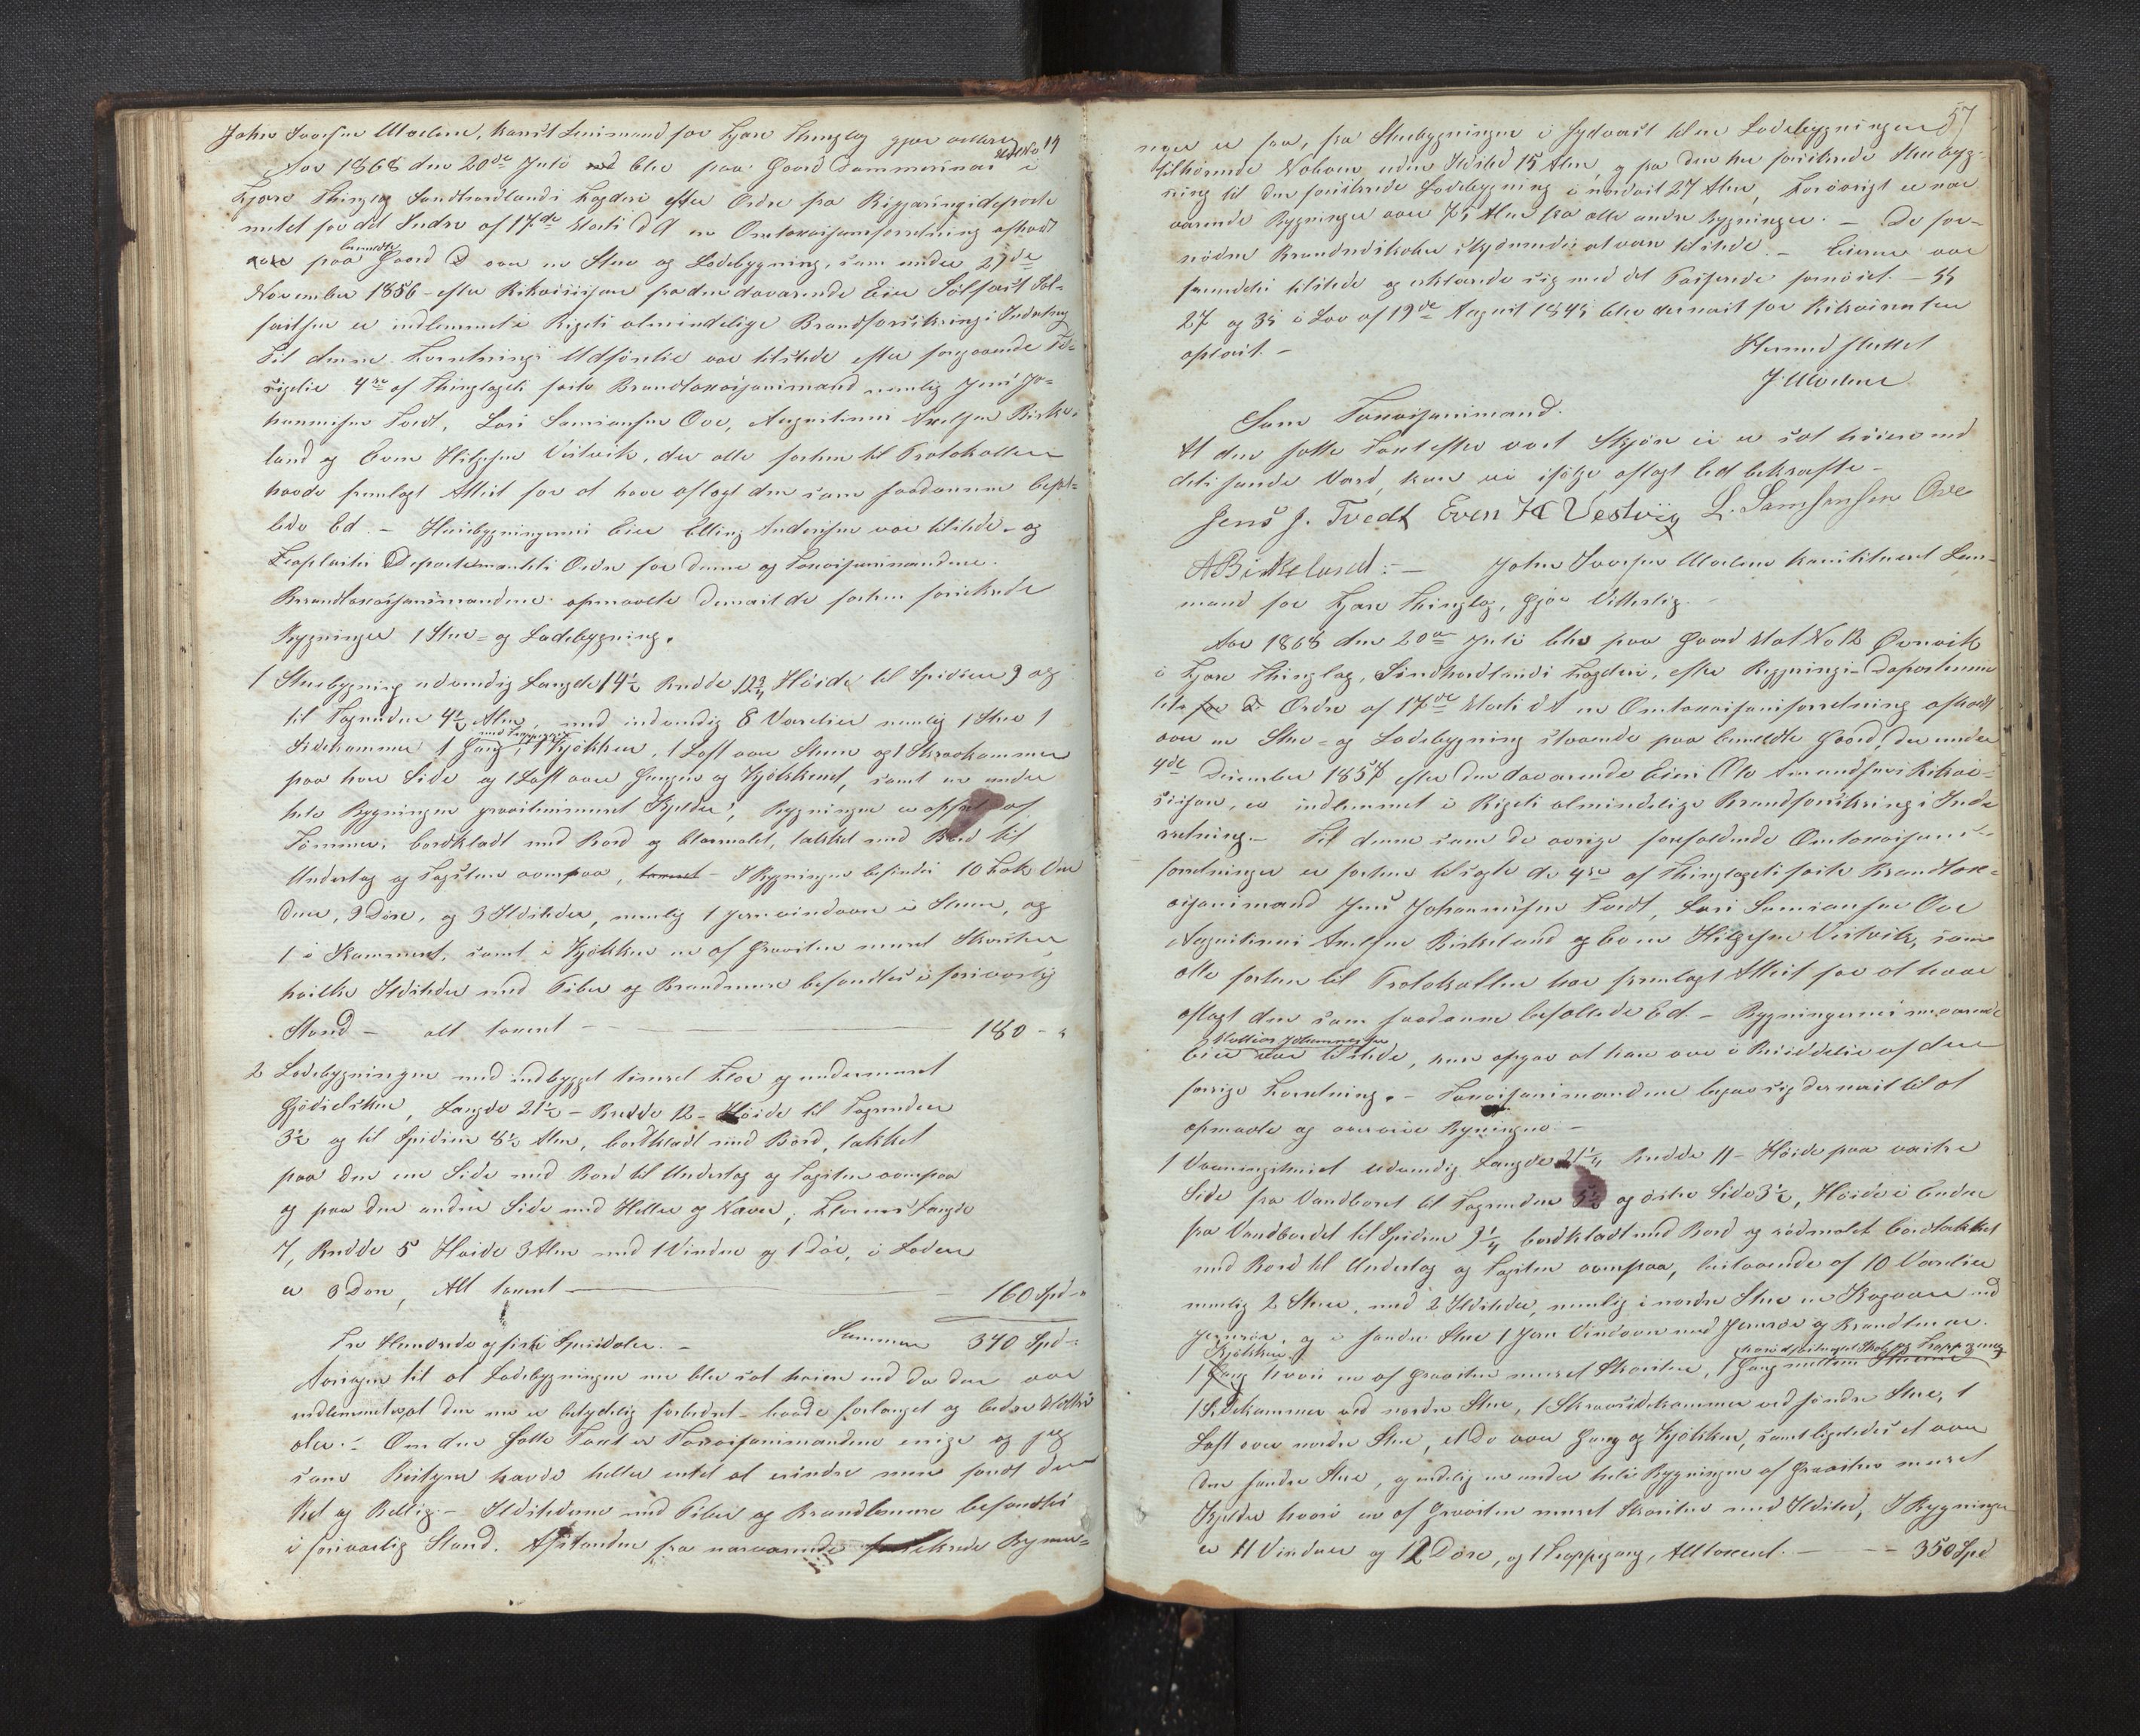 John Iversen Moelene, Konst Lensmand for Kjøre Thinglag gjør vitterlig
Aar 1868 den 20de Juli blev paa Gaard Sammersnæs Mat No 19 i
Thinglag Søndhordlands Fogderi efter Ordre fra Bygningsdeparte
mentet for det Indre af 17de Marts d A en Omtaxasjonsforretning afholdt
over paa bemeldte Gaard over en Stue og Ladebygning, som under 27de
November 1856 efter Rekvisisjon fra den daværende Eier Sølfæst Søl-
fæstsen er indlemmet i Rigets almindelige Brandforsikrings Indretng
Til denne Forretnings Udførelse var tilstede efter foregaaende Til-
sigelse 4re af Thinglagets faste Brandtaxasjonsmænd nemlig Jens Jo-
hannissen Tvedt, Lars Samsonsen Ove, Augustinus Axelsen Birke-
land og Even Helgesen Vestvik, der alle forhen til Protokollen
havde fremlagt Attest for at have aflagt den som saadanne befa-
lede Ed. - Huusbygningernes Eier Elling Andersen var tilstede - og
Departementets Ordre for denne og Taxasjonsmændene.
Brandtaxasjonsmændene opmaalte dernæst de forhen forsikrede
Bygninger 1 Stue- og Ladebygning.
1 Stuebygning udvendig Længde 14½ Bredde 12¾ Høide til Spidsen 9 og
til Tagrenden 4½ Alen, med indvendig 8 Værelser nemlig 1 Stue 1
Sidekammer 1 Gang med Trappegang, 1 Kjøkken, 1 Loft over Stuen og 1 Skraakammer
paa hver Side og 1 Loft over Gangen og Kjøkkenet, samt en under
hele Bygningen graasteensmuret Kjelder, Bygningen er opført af
Tømmer, bordklædt med Bord og blaamalet, tækket med Bord til
Undertag og Tagsteen ovenpaa, I Bygningen befindes 10 Fak Vin
duer, 9 Døre, og 3 Ildsteder, nemlig 1 Jernvindovn i Stuen, og
1 i Kammeret, samt i Kjøkken en af Graasteen muret Skorsteen
hvilke Ildsteder med Piber og Brandmure befandtes i forsvarlig
Stand - alt taxeret - 180 - "
2 Ladebygningen med indbygget tømret Floe og undermuret
Gjødselskur, Længde 21½ - Bredde 12 - Høide til Tagrenden
3½ og til Spidsen 8½ Alen, bordklædt med Bord, tækket
paa den ene Side med Bord til Undertag og Tagsteen ovenpaa
og paa den anden Side med Heller og Næver, Floens Længde
7, Bredde 5 Høide 3 Alen med 1 Vindue og 1 Dør, i Laden
er 3 Døre, Alt taxeret - 160 Spd - "
Tre Hundrede og firti Speisdaler. - Summen 340 Spd -
Aarsagen til at Ladebygningen nu blev sat høiere end da den var
indlemmet er, at den nu er betydelig forbedret - baade forlænget og bedre
Om den satte Taxt er Taxasjonsmændene enige og jeg
som Bestyrer havde heller intet at erindre men fandt den
Ret og Billig. - Ildstederne med Piber og Brandmure befandtes
i forsvarlig Stand. Afstanden fra nærværende forsikrede Bygnin-
57
nger er saa, fra Stuebygningen i Sydvæst til en Ladebygningen
tilhørende Naboen uden Ildsted 15 Alen, og fra den her forsikrede Stuebyg-
ning til den forsikrede Ladebygning i nordost 27 Alen, Forøvrigt er nær
værende Bygninger over 75 Alen fra alle andre Bygninger. - De for-
nødne Brandredskaber skjønnedes at være tilstede. - Eieren var
fremdeles tilstede og erklærede sig med det Passerede fornøiet. - §§
27 og 35 i Lov af 19de August 1845 blev dernæst for Rekvirenten
oplæst. -
Hermed sluttet
J. Moelene
Som Taxasjonsmænd.
At den satte Taxt efter vort Skjøn ei er sat høiere end
dets sande Værd, kan vi ifølge aflagt Ed bekræfte -
Jens J. Tvedt Even H Vestvig L. Samsonsen Ove
A Birkeland. - John Iversen Moelene konstitueret Lens-
mand for Thinglag, Gjør Vitterlig.
Aar 1868 den 20de Juli blev paa Gaard Mat No 12 Øvrevik
i Thinglag, Søndhordlands Fogderi, efter Bygnings-Departemen
tets Ordre af 17de Marts d A en Omtaxasjonsforretning afholdt
over en Stue- og Ladebygning staaende paa bemeldte Gaard, der under
4de Desember 1857 efter den daværende Eiers Ole Amundsens Rekvi-
sisjon, er indlemmet i Rigets almindelige Brandforsikrings Inde
retning. - Til denne som de øvrige forefaldende Omtaxasjons-
forretninger er forhen tilsagte de 4re af Thinglagets faste Brandtax-
asjonsmænd Jens Johannissen Tvedt, Lars Samsonsen Ove
Augustinus Axelsen Birkeland og Even Helgesen Vestvik, som
alle forhen til Protokollen har fremlagt Attest for at have
aflagt den som saadanne befallede Ed. - Bygningernes nuværende
Eier Mathias Johannessen var tilstede, han opgav at han var i Besiddelse af den
forrige Forretning. - Taxasjonsmændene begav sig dernæst til at
opmaale og overveie Bygningene. -
1 Vaaningshuset Udvendig Længde 21¼ Bredde 11 - Høide paa vestre
Side fra Vandbordet til Tagrenden 5½ og østre Side 3½, Høide i Enden
fra Vandbordet til Spidsen 9¼ bordklædt med Bord og rødmalet bordtækket
med Bord til Undertag og Tagsteen ovenpaa, bestaaende af 10 Værelser
nemlig 2 Stuer, med 2 Ildsteder, nemlig i nordre Stue en Kogovn med
Jernrør, og i søndre Stue 1 Jern Vindovn med Jernrør og Brandmur.
1 Kjøkken hvori en af Graasteen muret Skorsteen, 1 Gang mellem Stuerne
1 Sidekammer ved nordre Stue, 1 Skraasidekammer ved søndre Stue, 1
Loft over nordre Stue, et Do over Gang og Kjøkken, samt ligeledes et over
den søndre Stue, og endelig en under hele Bygningen af Graasteen muret
Kjelder hvori en af Graasteen muret Skorsteen med Ildsted, I Bygningen
er 11 Vinduer og 12 Døre, og 1 Trappegang, Alt taxeret. - 350 Spd